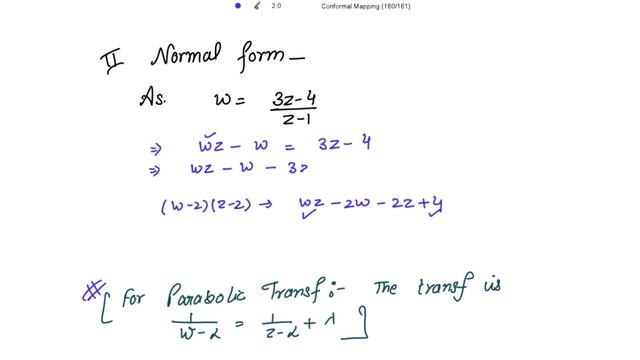 2.0 Conformal Mapping (160/161)
II Normal form —
As. w = (3z-4)/(z-1)
⇒ wz - w = 3z - 4
⇒ wz - w - 3z
(w-2)(z-2) → wz - 2w - 2z + 4
# [ for Parabolic Transf:- The transf is
1/(w-2) = 1/(z-2) + λ ]